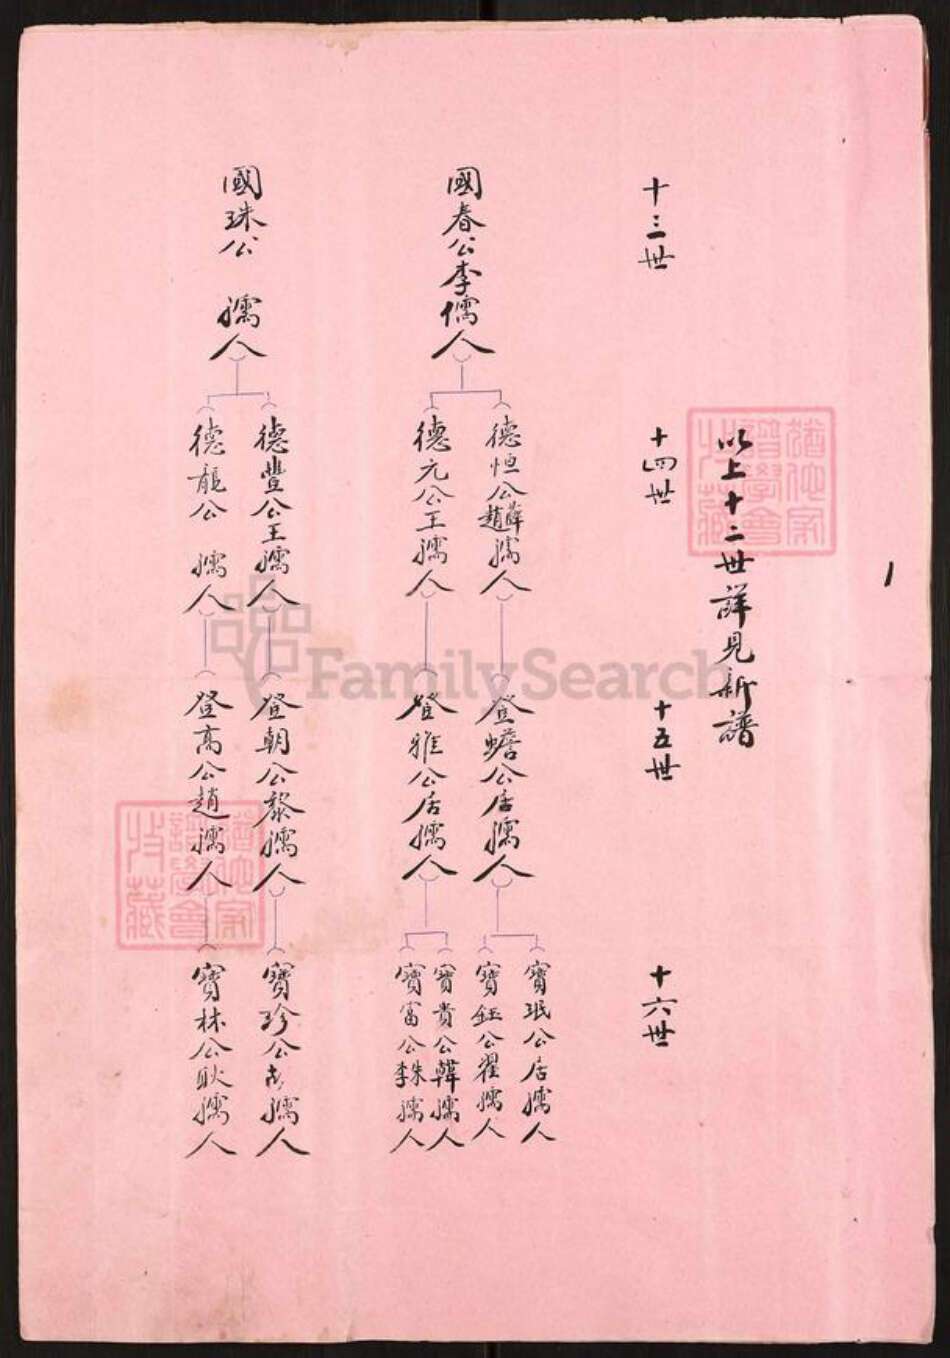 以上十二世詳見新譜
十三世
國春公李儒人
國珠公 孺人
十四世
德恒公薛趙孺人
德元公王孺人
德豐公王孺人
德龍公 孺人
十五世
登蟾公居孺人
登雅公居孺人
登朝公黎孺人
登高公趙孺人
十六世
寶珉公居孺人
寶鈺公翟孺人
寶貴公韓孺人
寶富公朱李孺人
寶珍公 孺人
寶林公耿孺人
1
FamilySearch